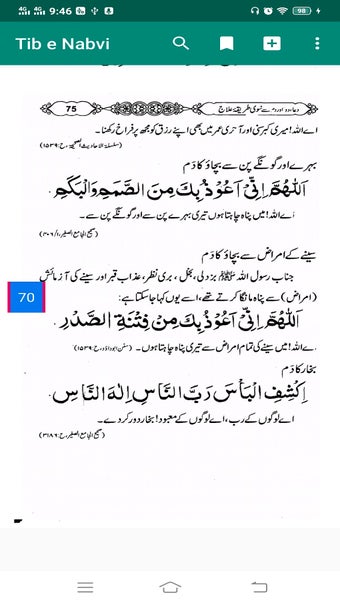 9:46
98
Tib e Nabvi
75
دعاء، دوا اور دم سے نبوی طریقۂ علاج
اے اللہ! میری کبر سنی اور آخری عمر میں بھی اپنے رزق کو مجھ پر فراخ رکھنا۔
(سلسلۃ الاحادیث الصحیحۃ، ح: ۱۵۳۹)
بہرے اور گونگے پن سے بچاؤ کا دَم
اَللّٰهُمَّ اِنِّیْ اَعُوْذُ بِكَ مِنَ الصَّمَمِ وَالْبَكَمِ.
اے اللہ! میں پناہ چاہتا ہوں تیری بہرے پن سے اور گونگے پن سے۔
(صحیح الجامع الصغیر،
سینے کے امراض سے بچاؤ کا دَم
جناب رسول اللہ ﷺ بزدلی، بخل، بری نظر، عذاب قبر اور سینے کی آزمائش
70
(امراض) سے پناہ مانگا کرتے تھے، اسے یوں کہا جا سکتا ہے:
اَللّٰهُمَّ اِنِّیْ اَعُوْذُ بِكَ مِنْ فِتْنَةِ الصَّدْرِ.
اے اللہ! میں سینے کی تمام امراض سے تیری پناہ چاہتا ہوں۔ (سنن ابو داؤد، ح: ۱۵۳۹)
بخار کا دَم
اِكْشِفِ الْبَأْسَ رَبَّ النَّاسِ اِلٰهَ النَّاسِ.
اے لوگوں کے رب، اے لوگوں کے معبود! بخار دور کر دے۔
(صحیح الجامع الصغیر، ح: